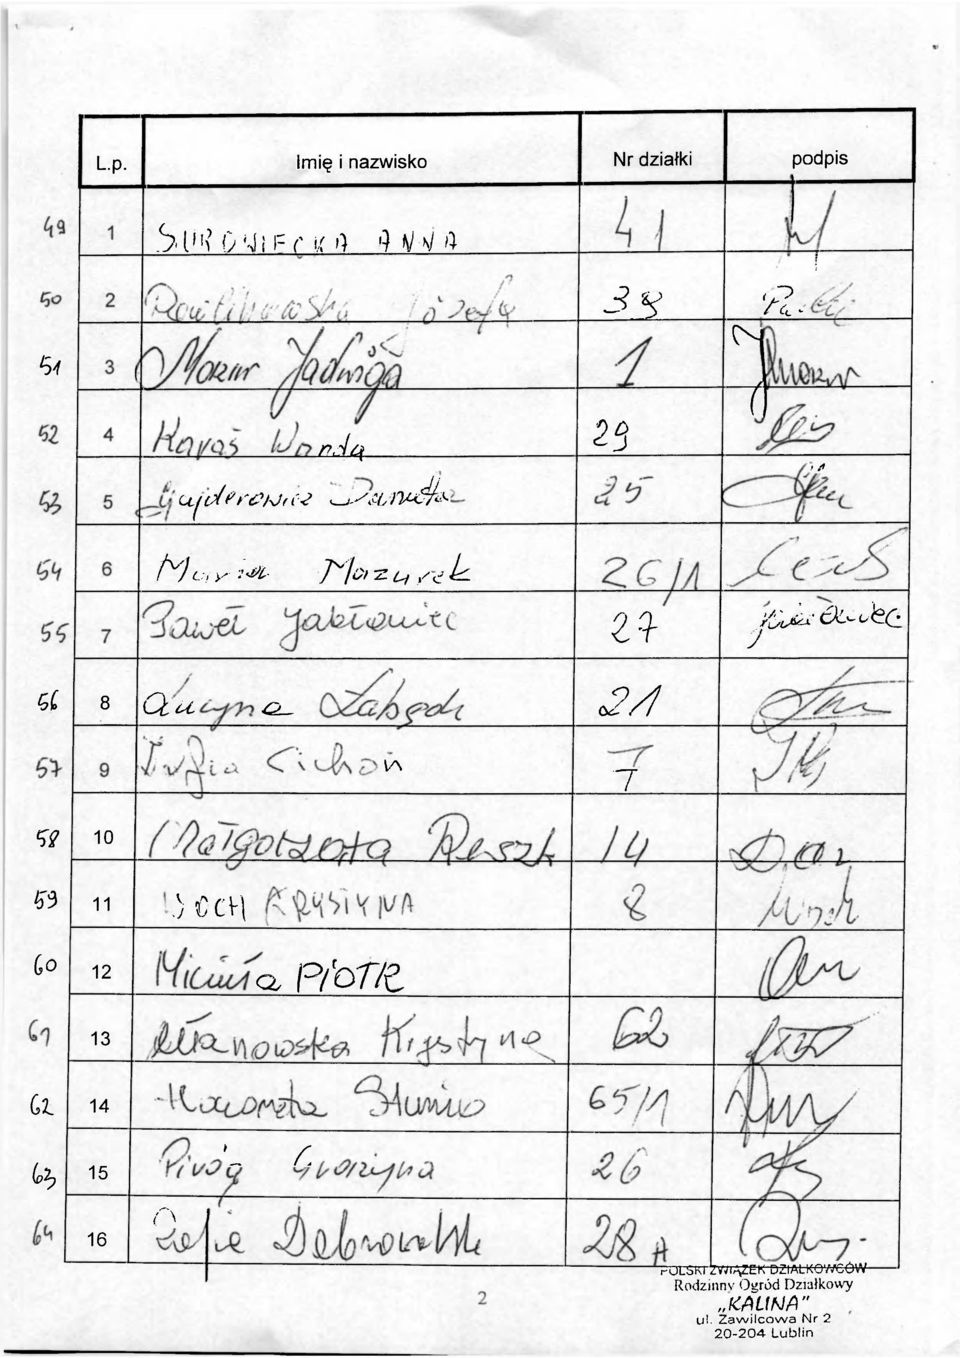 L.p. Imię i nazwisko Nr działki podpis
49 1 SUROWIECKA ANNA 41
50 2 Józefa 38
51 3 Mazur Jadwiga 1 JMazur
52 4 Karaś Wanda 29
53 5 Gajderowicz Danuta 25
54 6 Maria Mazurek 26/1
55 7 Paweł Jabłoniec 27
56 8 Lucyna Łabędź 21
57 9 Zofia Cichoń 7
58 10 Małgorzata Reszk 14
59 11 WOCH KRYSTYNA 8
60 12 PIOTR
61 13 Krystyna 62
62 14 65/1
63 15 Piróg Grażyna 26
64 16 Zofia Dąbrowska 28 A
POLSKI ZWIĄZEK DZIAŁKOWCÓW
Rodzinny Ogród Działkowy
2
„KALINA"
ul. Zawilcowa Nr 2
20-204 Lublin